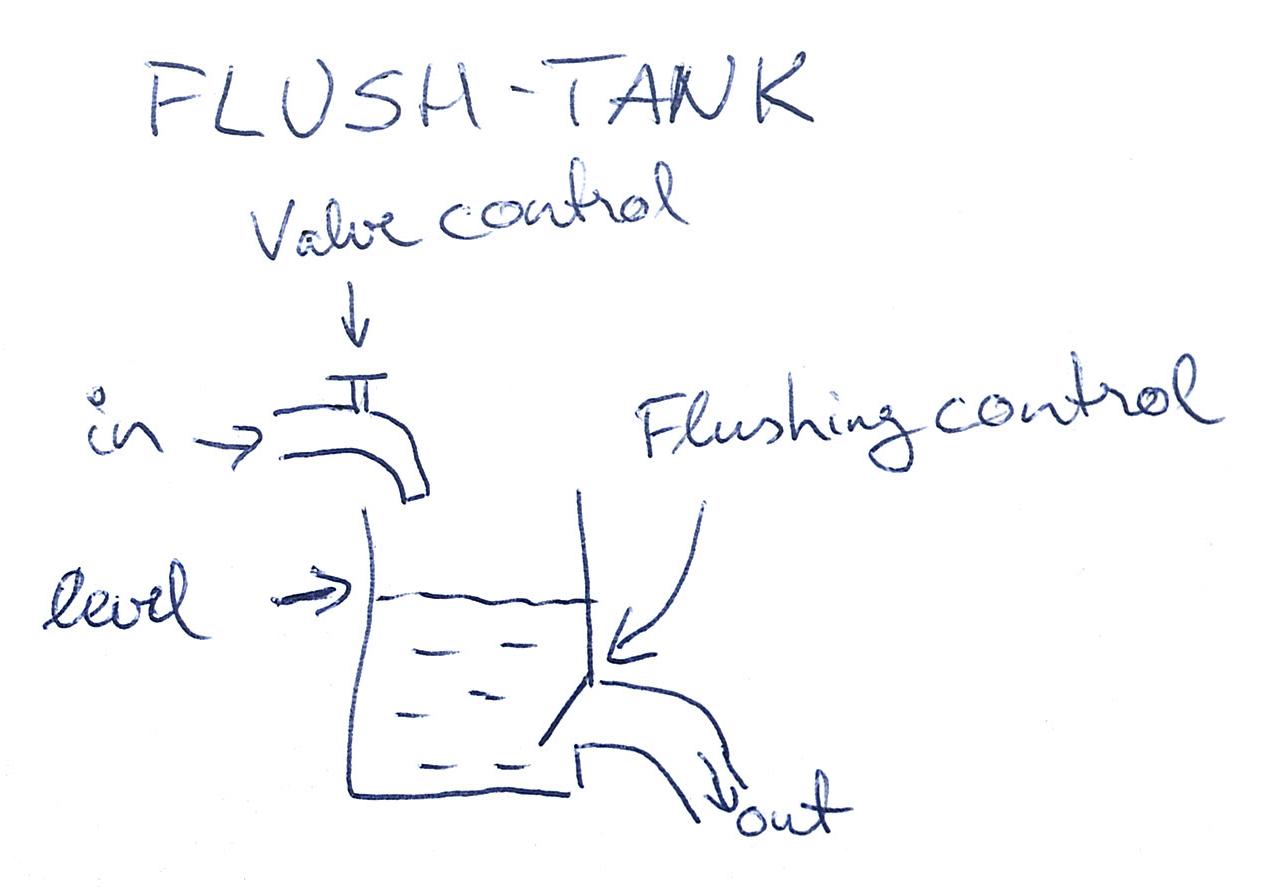 FLUSH-TANK
Valve control
in
Flushing control
level
out